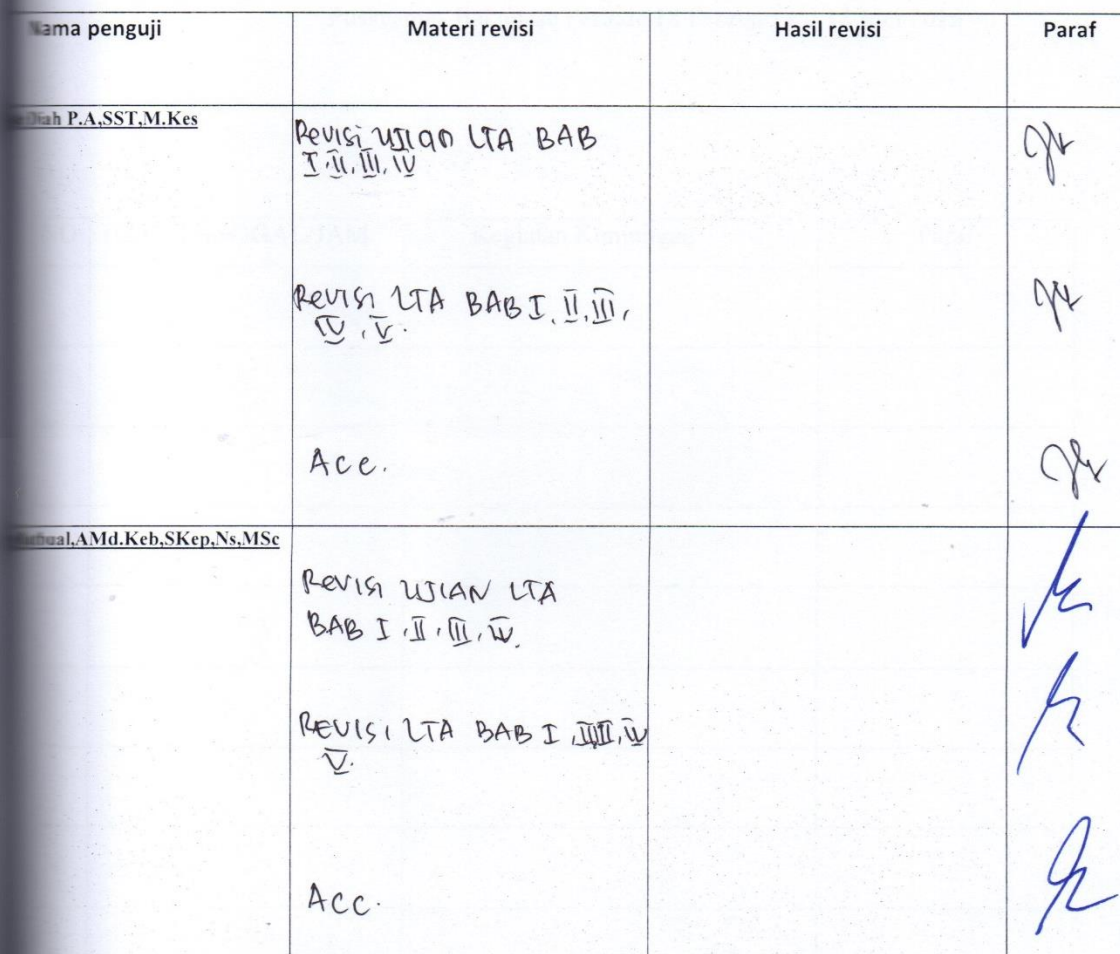 Nama penguji Materi revisi Hasil revisi Paraf
Diah P.A,SST,M.Kes
Revisi Ujian LTA BAB
I, II, III, IV
Revisi LTA BAB I, II, III,
IV, V.
Acc.
bual,AMd.Keb,SKep,Ns,MSc
Revisi UJIAN LTA
BAB I, II, III, IV.
REVISI LTA BAB I, II, III, IV
V.
Acc.